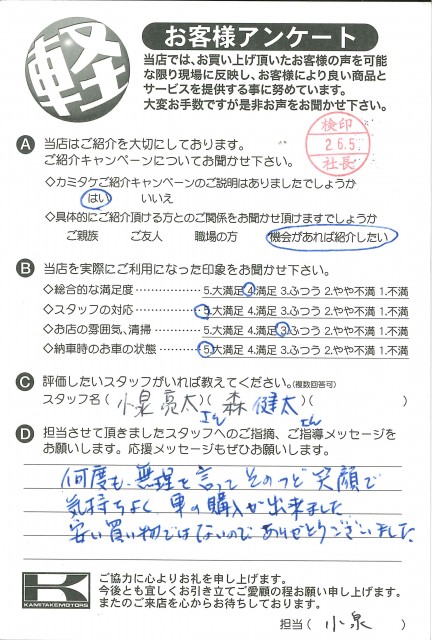 軽
お客様アンケート
当店では、お買い上げ頂いたお客様の声を可能
な限り現場に反映し、お客様により良い商品と
サービスを提供する事に努めています。
大変お手数ですが是非お声をお聞かせ下さい。
検印
2.6.5
社長
A 当店はご紹介を大切にしております。
ご紹介キャンペーンについてお聞かせ下さい。
◇カミタケご紹介キャンペーンのご説明はありましたでしょうか
はい いいえ
◇具体的にご紹介頂ける方とのご関係をお聞かせ頂けますでしょうか
ご親族 ご友人 職場の方 機会があれば紹介したい
B 当店を実際にご利用になった印象をお聞かせ下さい。
◇総合的な満足度 5.大満足 4.満足 3.ふつう 2.やや不満 1.不満
◇スタッフの対応 5.大満足 4.満足 3.ふつう 2.やや不満 1.不満
◇お店の雰囲気、清掃 5.大満足 4.満足 3.ふつう 2.やや不満 1.不満
◇納車時のお車の状態 5.大満足 4.満足 3.ふつう 2.やや不満 1.不満
C 評価したいスタッフがいれば教えてください。(複数回答可)
スタッフ名 ( 小泉亮太さん )( 森健太さん )( )
D 担当させて頂きましたスタッフへのご指摘、ご指導メッセージを
お願いします。応援メッセージもぜひお願いします。
何度も、無理を言ってそのつど笑顔で
気持ちよく車の購入が出来ました
安い買い物ではないのでありがとうございました
K
KAMITAKE MOTORS
ご協力に心よりお礼を申し上げます。
今後とも宜しくお引き立てご愛顧の程お願い申し上げます。
またのご来店を心からお待ちしております。
担当 ( 小泉 )